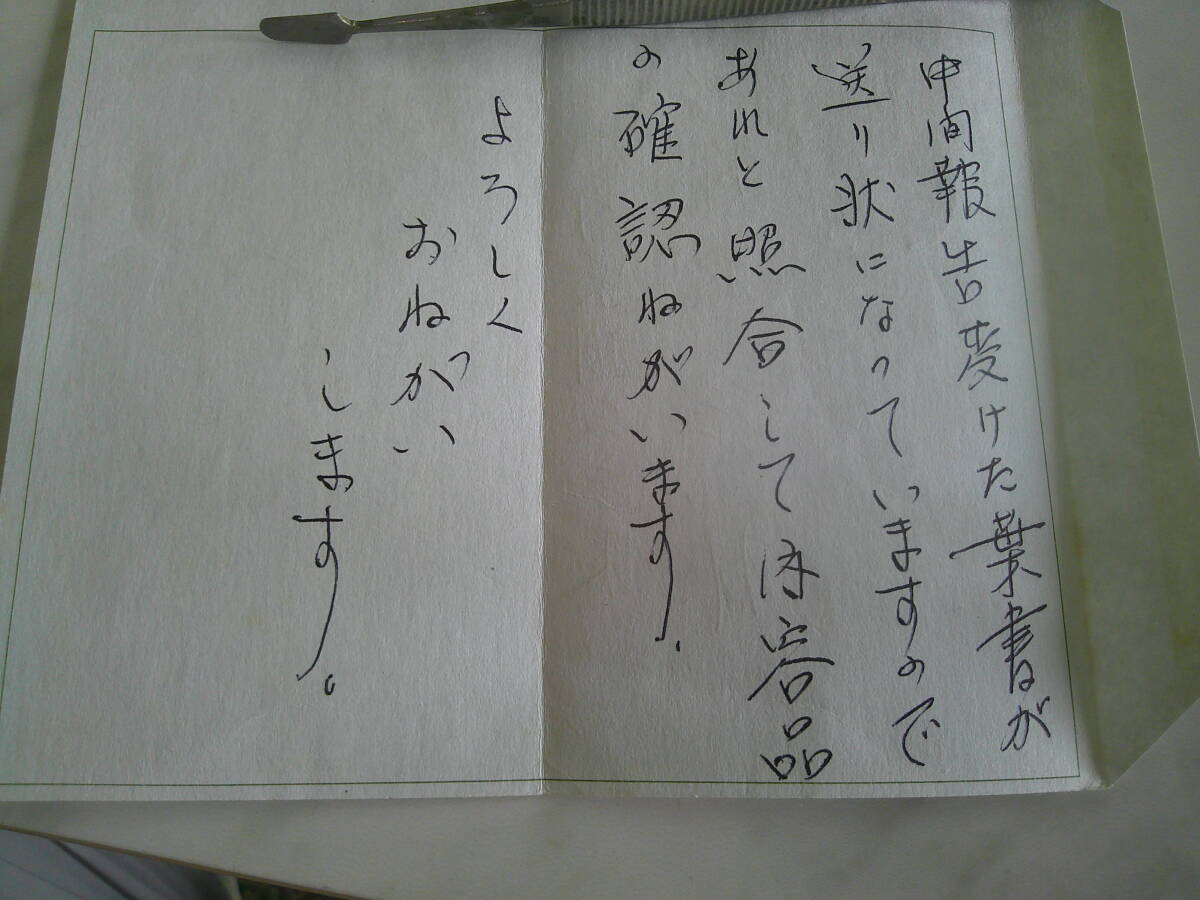 中間報告受けた葉書が
送り状になっていますので
あれと照合して内容品
の確認ねがいます.
よろしく
おねがい
します。